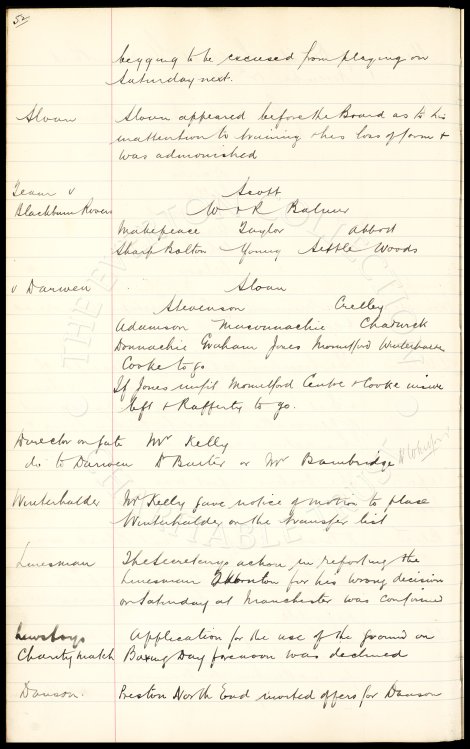 52
begging to be excused from playing on
Saturday next.
Sloan Sloan appeared before the Board as to his
inattention to training & his loss of form &
was admonished
Team v Scott
Blackburn Rovers W & R Balmer
Makepeace Taylor Abbott
Sharp Bolton Young Settle Woods
v Darwen Sloan
Stevenson Crelley
Adamson Macconnachie Chadwick
Donnachie Graham Jones Mountford Winterhalder
Cooke to go
If Jones unfit Mountford Centre & Cooke inside
left & Rafferty to go.
Director on gate Mr Kelly
do to Darwen Dr Baxter or Mr Bainbridge
Winterhalder Mr Kelly gave notice of motion to place
Winterhalder on the transfer list
Linesman The Secretarys action in reporting the
Linesman for his wrong decision
on Saturday at Manchester was confirmed
Newsboys Application for the use of the ground on
Charity Match Boxing Day forenoon was declined
Dawson. Preston North End invited offers for Dawson
THE EVERTON COLLECTION
CHARITABLE TRUST